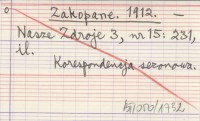 Zakopane. 1912. —
Nasze Zdroje 3, nr 15: 231,
il.
Korespondencja sezonowa.